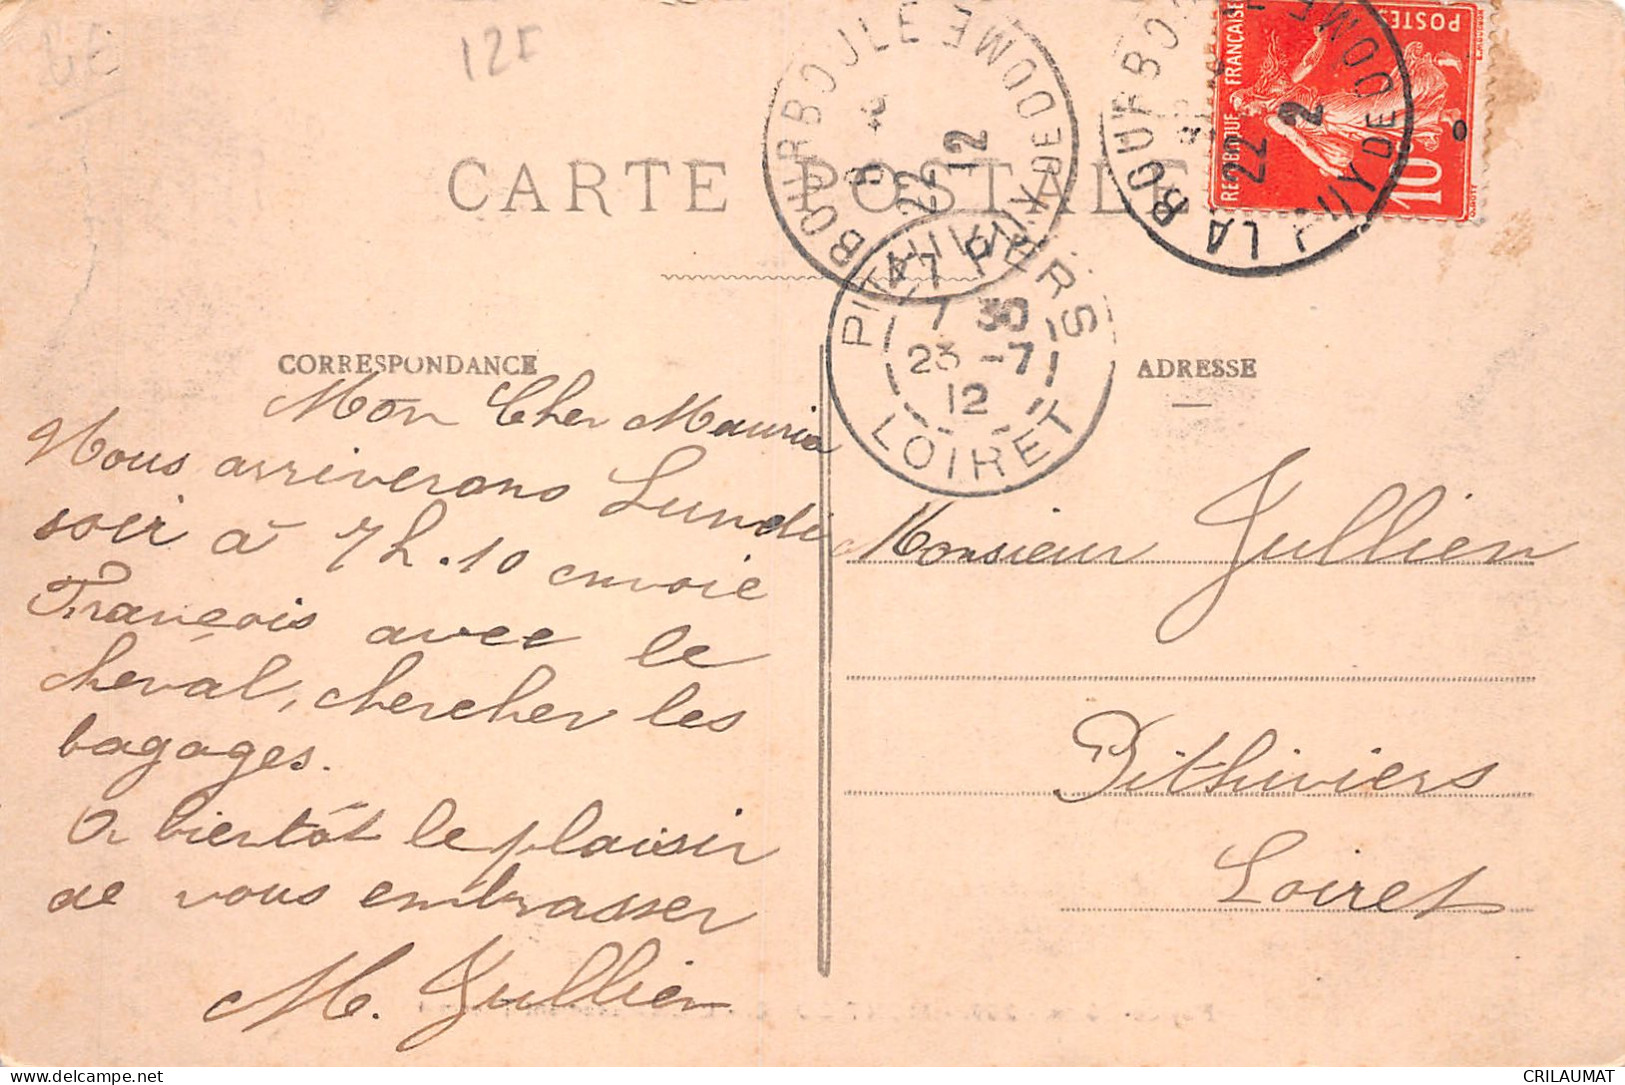 12F
CARTE POSTALE
LA BOURBOULE
PUY DE DOME
22
12
REPUBLIQUE FRANÇAISE
POSTES
10
LA BOURBOULE
PUY DE DOME
22
PITHIVIERS
7 30
23 -7
12
LOIRET
CORRESPONDANCE
ADRESSE
Mon Cher Maurice
Nous arriverons Lundi
soir à 7h.10 envoie
François avec le
cheval, chercher les
bagages.
A bientôt le plaisir
de vous embrasser
M. Jullien
Monsieur Jullien
Pithiviers
Loiret
CRILAUMAT